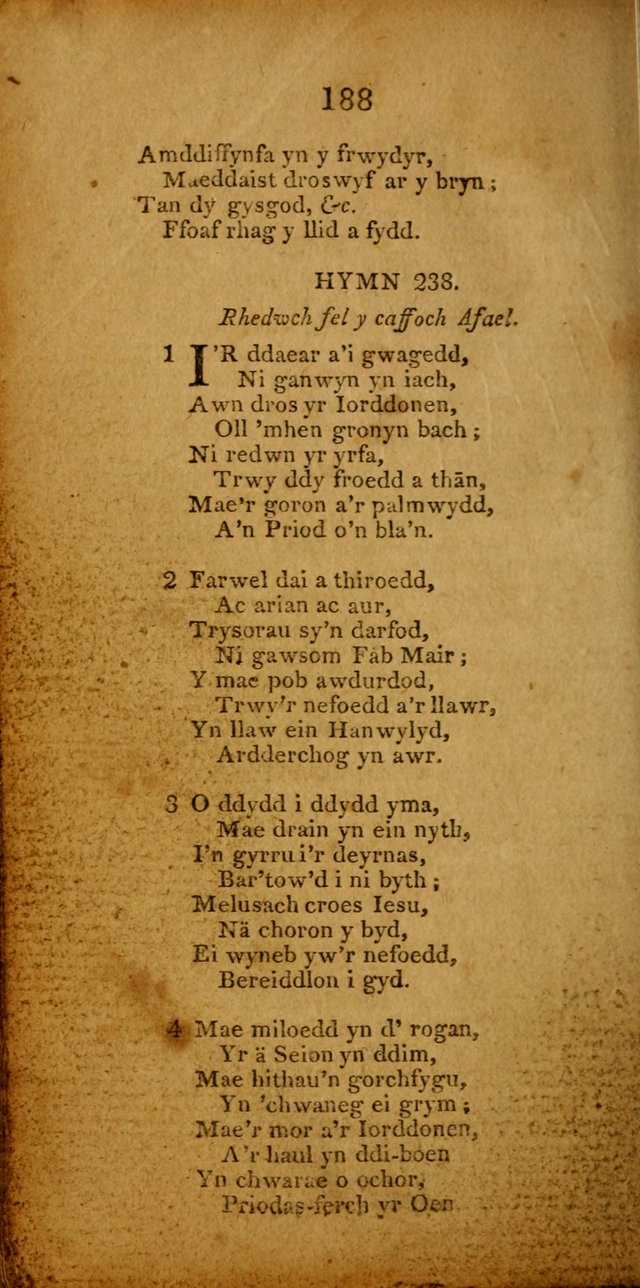 188
Amddiffynfa yn y frwydyr,
Maeddaist droswyf ar y bryn;
Tan dy gysgod, &c.
Ffoaf rhag y llid a fydd.
HYMN 238.
Rhedwch fel y caffoch Afael.
1 I'R ddaear a'i gwagedd,
Ni ganwyn yn iach,
Awn dros yr Iorddonen,
Oll 'mhen gronyn bach;
Ni redwn yr yrfa,
Trwy ddy froedd a thān,
Mae'r goron a'r palmwydd,
A'n Priod o'n bla'n.
2 Farwel dai a thiroedd,
Ac arian ac aur,
Trysorau sy'n darfod,
Ni gawsom Fab Mair;
Y mae pob awdurdod,
Trwy'r nefoedd a'r llawr,
Yn llaw ein Hanwylyd,
Ardderchog yn awr.
3 O ddydd i ddydd yma,
Mae drain yn ein nyth,
I'n gyrru i'r deyrnas,
Bar'tow'd i ni byth;
Melusach croes Iesu,
Nä choron y byd,
Ei wyneb yw'r nefoedd,
Bereiddlon i gyd.
4 Mae miloedd yn d' rogan,
Yr ä Seion yn ddim,
Mae hithau'n gorchfygu,
Yn 'chwaneg ei grym;
Mae'r mor a'r Iorddonen,
A'r haul yn ddi-boen
Yn chwarae o ochor,
Priodas-ferch yr Oen